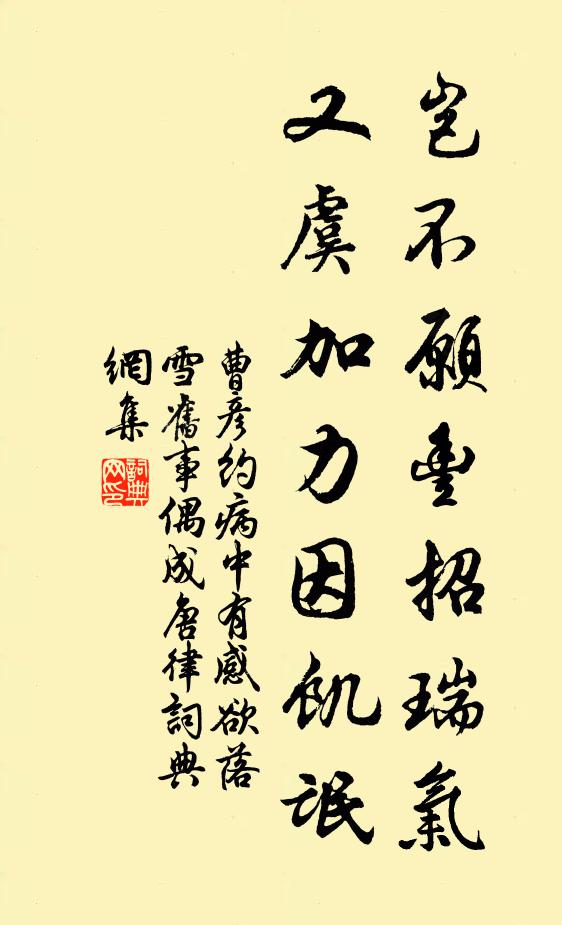 豈不願豊招瑞氣
又虞加力因飢氓
曹彦約病中有感欲落
雪舊事偶成唐律詞典
網集
詞典
网印